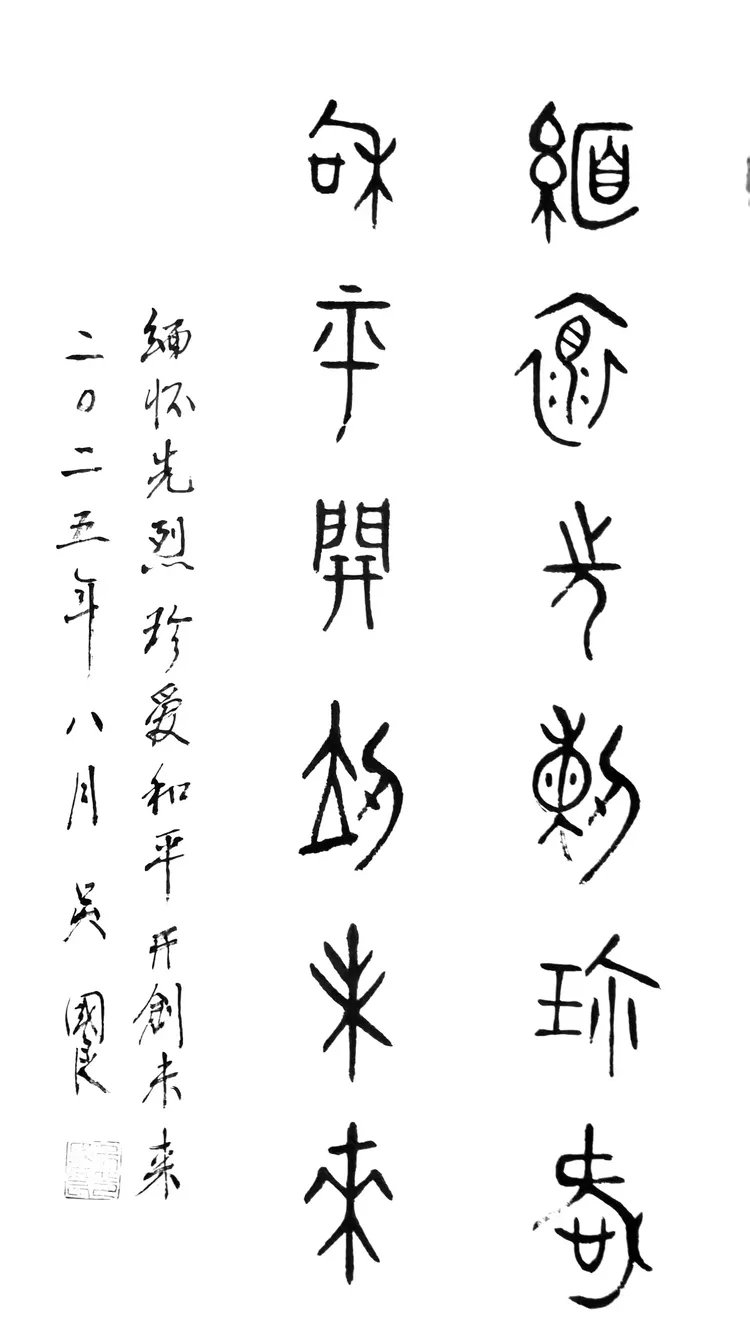 緬懷先烈珍愛
和平開創未来
緬怀先烈珍爱和平开創未来
二〇二五年八月吴國良